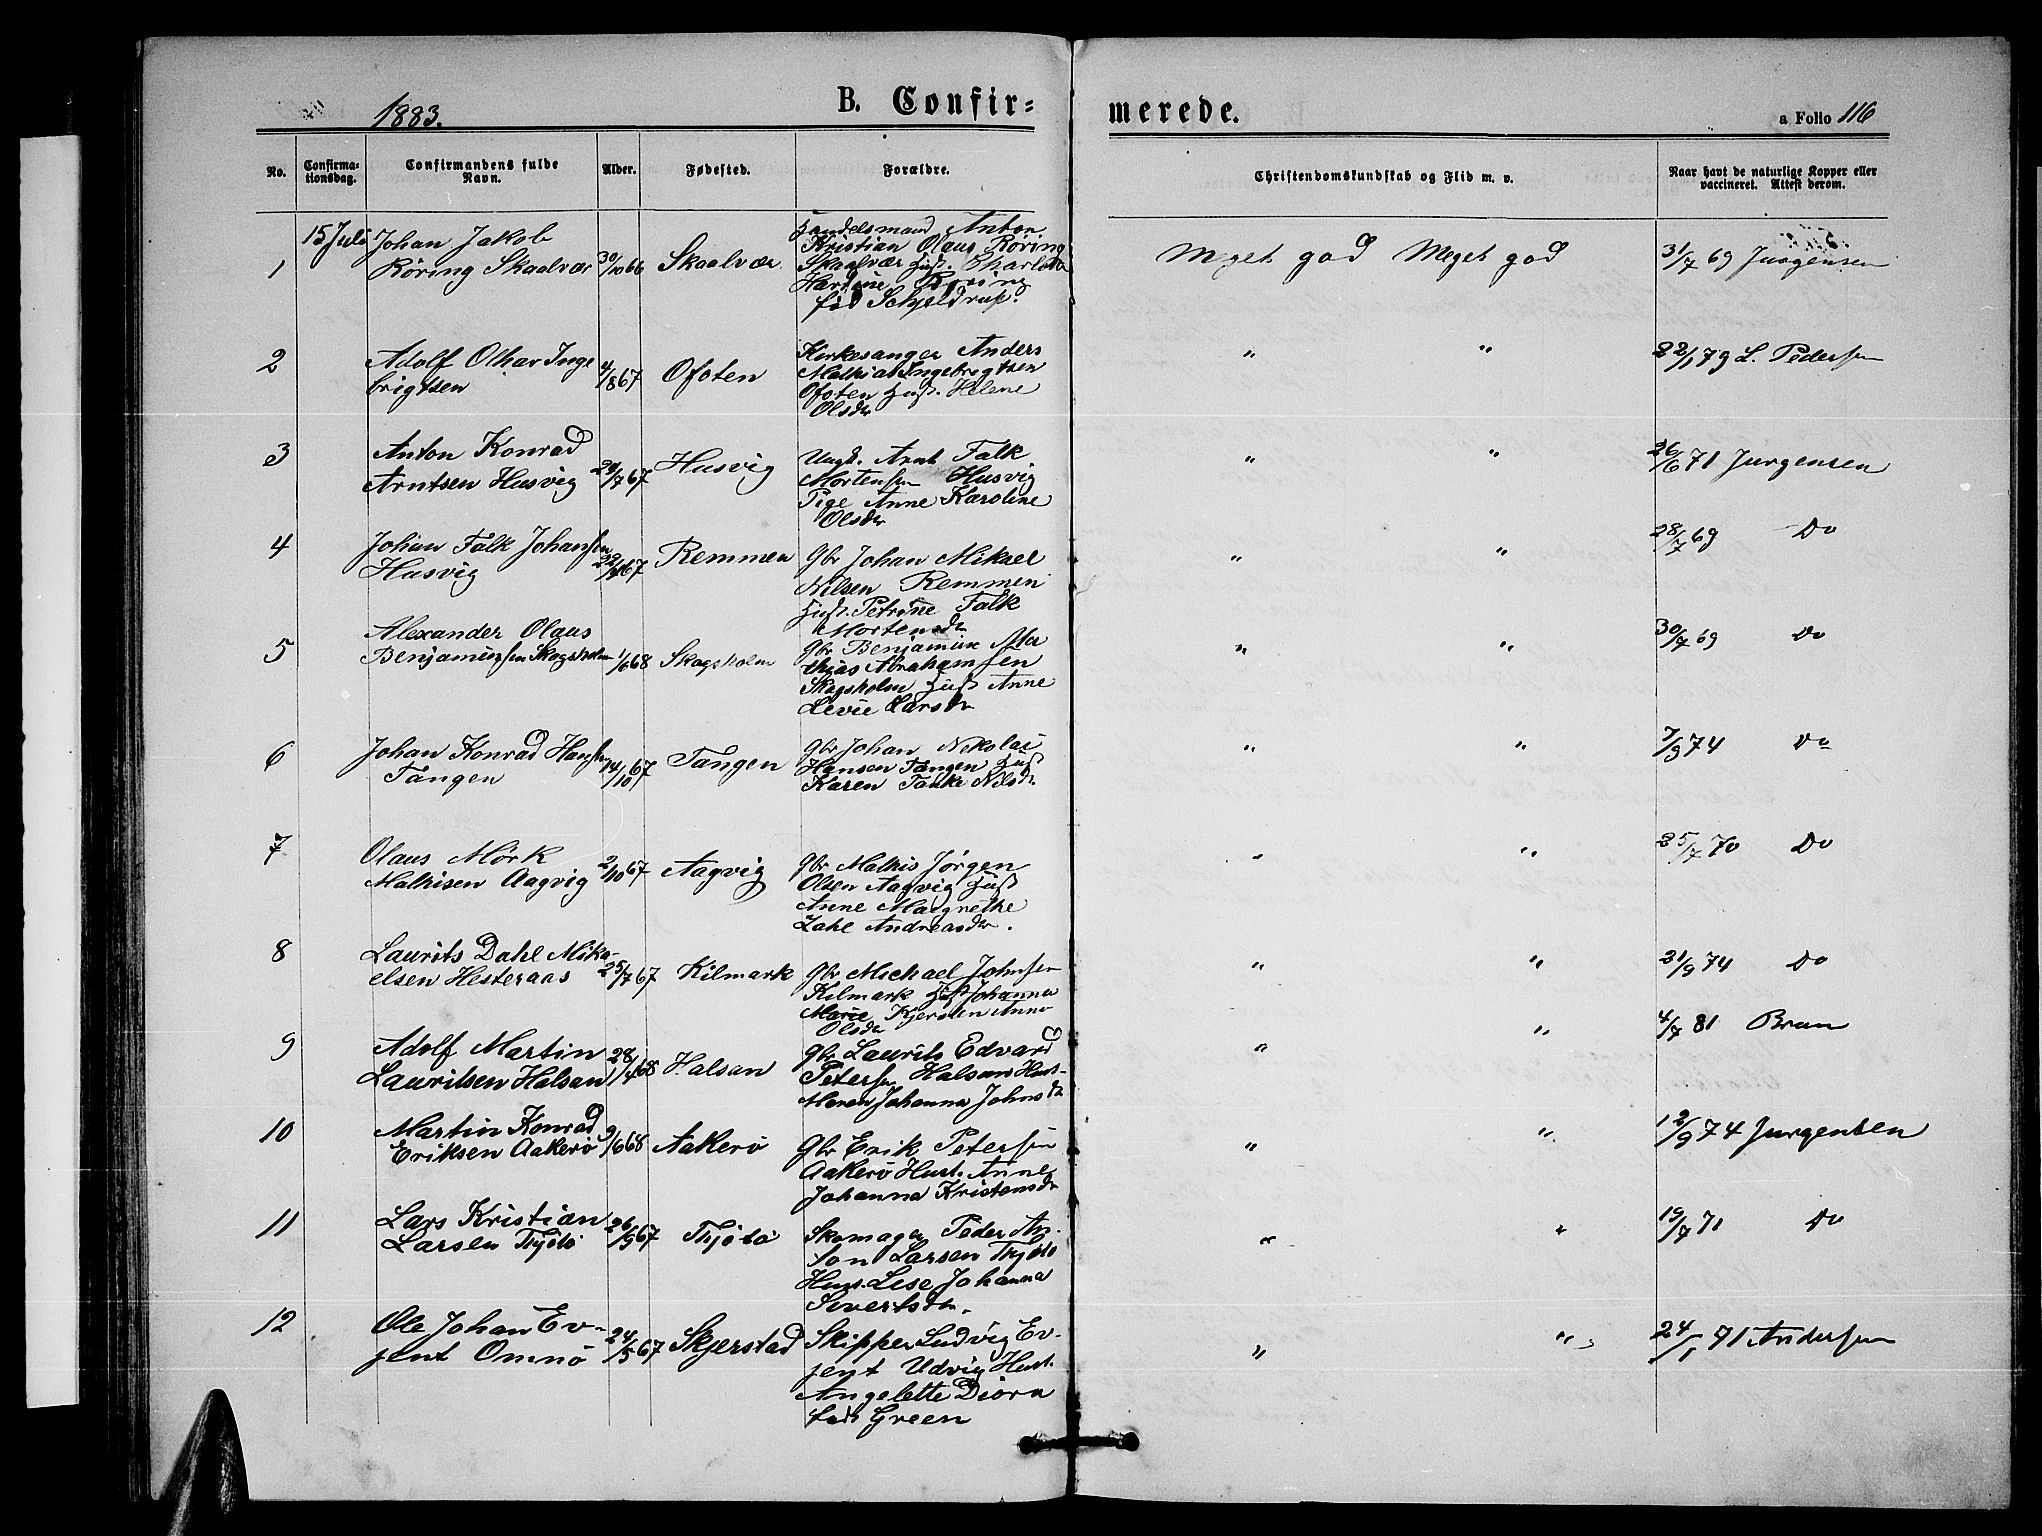 1883.
B. Confir=
merede.
a Folio 116
No.
Confirma-
tionsdag.
Confirmandens fulde
Navn.
Alder.
Fødested.
Forældre.
Christendomskundskab og Flid m. v.
Naar havt de naturlige Kopper eller
vaccineret. Attest derom.
1 15 Juli Johan Jakob
Röring Skaalvær 30/10 66 Skaalvær
Handelsmand Anton
Kristian Olaus Röring
Skaalvær Hust. Charlotte
Hardine Röring
föd Schjeldrup.
Meget god Meget god 31/7 69 Jurgensen
2 Adolf Othar Inge
brigtsen 4/8 67 Ofoten
Kirkesanger Anders
Mathias Ingebrigtsen
Ofoten Hust. Helene
Olsdr
" " 22/1 79 L. Pedersen
3 Anton Konrad
Arntsen Husvig 29/7 67 Husvig
Ungk. Arnt Falk
Mortensen Husvig
Pige Anne Karoline
Olsdr
" " 26/6 71 Jurgensen
4 Johan Falk Johansen
Husvig 67 Remmen
Gbr Johan Mikael
Nilsen Remmen
Hust. Petrine Falk
Mortensdr
" " 28/7 69 Do
5 Alexander Olaus
Benjaminsen Skogsholm 1/6 68 Skogsholm
Gbr Benjamin Ma
thias Abrahamsen
Skogsholm Hust Anne
Levie Larsdr
" " 30/7 69 Do
6 Johan Konrad Hansen
Tangen 14/10 67 Tangen
Gbr Johan Nikolai
Hansen Tangen Hust
Karen Tanke Nilsdr
" " 7/9 74 Do
7 Olaus Mörk
Mathisen Aagvig 2/10 67 Aagvig
Gbr Mathis Jörgen
Olsen Aagvig Hust
Anne Margrethe
Zahl Andreasdr.
" " 25/7 70 Do
8 Laurits Dahl Mika-
elsen Hesteraas 25/7 67 Kilmark
Gbr Michael Johnsen
Kilmark Hust Johanna
Marie Kjersten Anna
Olsdr
" " 21/9 74 Do
9 Adolf Martin
Lauritsen Halsan 28/4 68 Halsan
Gbr Laurits Edvard
Petersen Halsan Hust-
Maren Johanna Johnsdr
" " 4/7 81 Brun
10 Martin Konrad
Eriksen Aakerö 9/6 68 Aakerö
Gbr Erik Petersen
Aakerö Hust. Anne
Johanna Kristensdr
" " 12/9 74 Jurgensen
11 Lars Kristian
Larsen Thjötö 26/9 67 Thjötö
Skomager Peder An-
ton Larsen Thjötö
Hust. Lise Johanna
Sivertsdr.
" " 19/7 71 Do
12 Ole Johan Ev-
jent Omnö 24/5 67 Skjerstad
Skipper Ludvig Ev-
jent Udvig Hust
Angelette Diora
föd Green
" " 24/1 71 Andersen